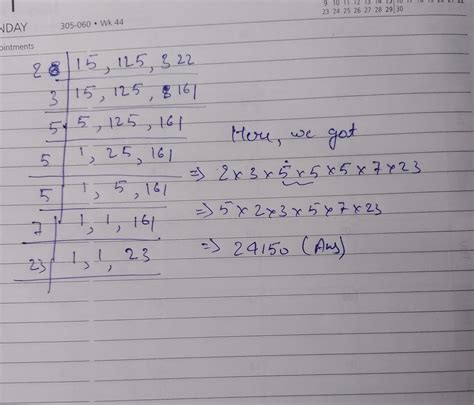 NDAY 305-060 • Wk 44
ointments
9 10 11 12 13 14 15 16 17 18 19 20
23 24 25 26 27 28 29 30
2 | 15, 125, 322
3 | 15, 125, 161
5 | 5, 125, 161
5 | 1, 25, 161
5 | 1, 5, 161
7 | 1, 1, 161
23 | 1, 1, 23
Here, we got
⇒ 2×3×5×5×5×7×23
⇒ 5×2×3×5×7×23
⇒ 24150 (Ans)